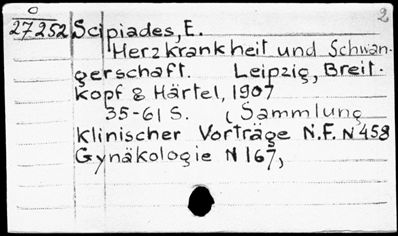 2
O
27252 Scipiades, E.
Herzkrankheit und Schwan-
gerschaft. Leipzig, Breit-
kopf & Härtel, 1907
35-61 S. (Sammlung
klinischer Vorträge N.F. N 458
Gynäkologie N 167,